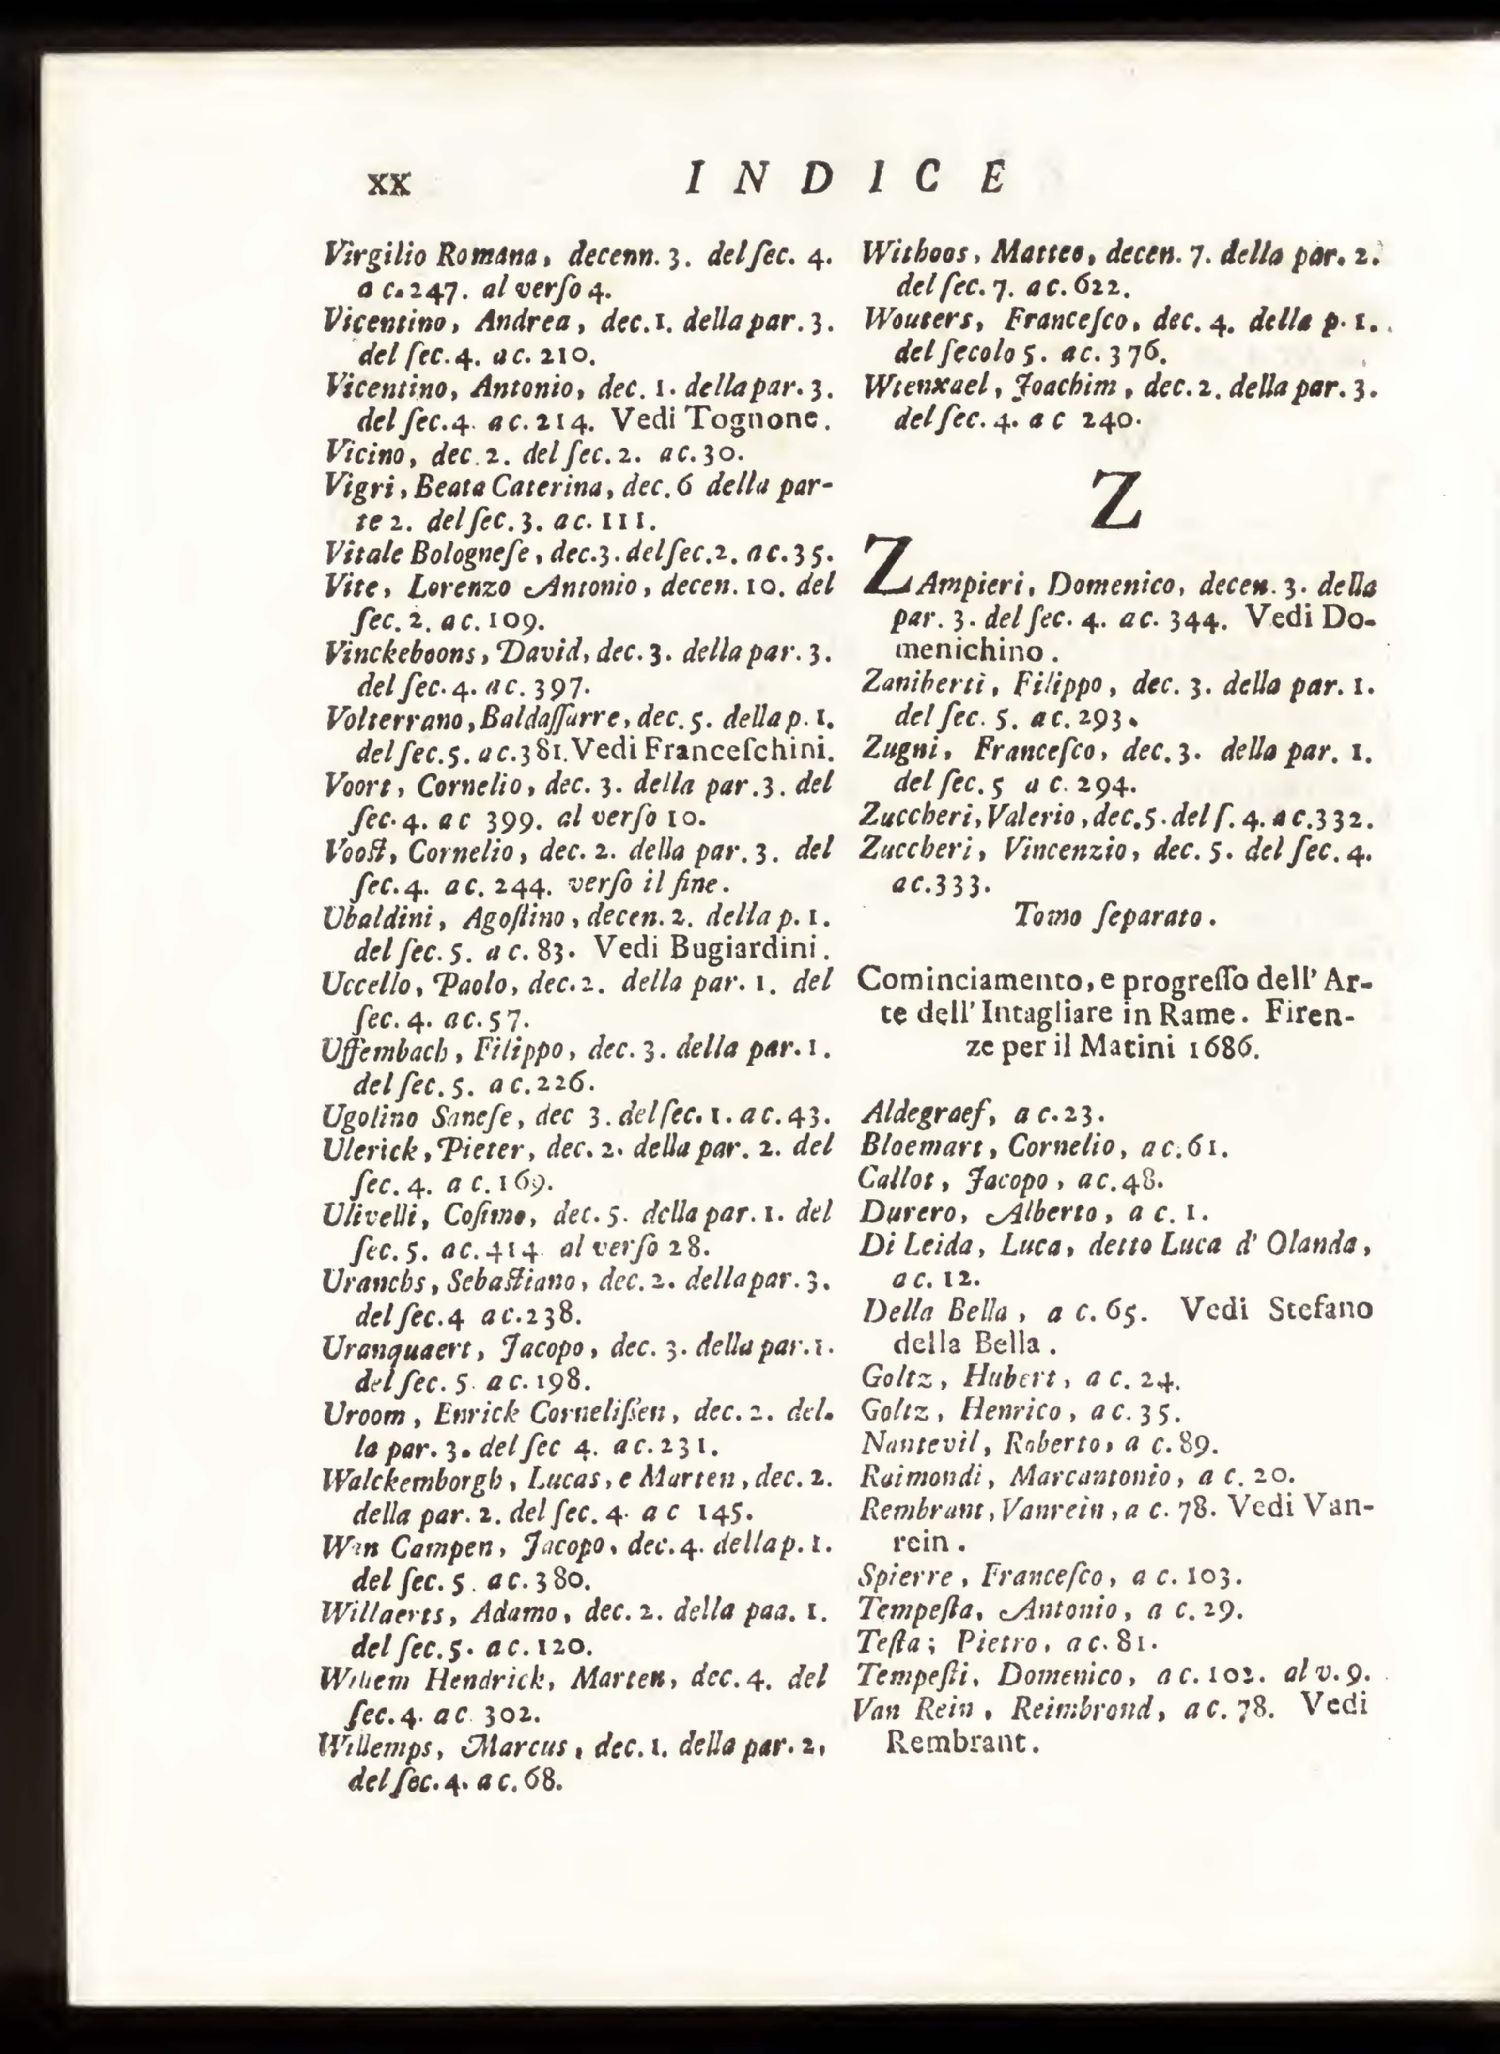 xx INDICE
Virgilio Romana, decenn. 3. del ſec. 4.
a c. 247. al verſo 4.
Vicentino, Andrea, dec. 1. della par. 3.
del ſec. 4. a c. 210.
Vicentino, Antonio, dec. 1. della par. 3.
del ſec. 4. a c. 214. Vedi Tognone.
Vicino, dec. 2. del ſec. 2. a c. 30.
Vigri, Beata Caterina, dec. 6 della par-
te 2. del ſec. 3. a c. 111.
Vitale Bologneſe, dec. 3. del ſec. 2. a c. 35.
Vite, Lorenzo Antonio, decen. 10. del
ſec. 2. a c. 109.
Vinckeboons, David, dec. 3. della par. 3.
del ſec. 4. a c. 397.
Volterrano, Baldaſſarre, dec. 5. della p. 1.
del ſec. 5. a c. 381. Vedi Franceſchini.
Voort, Cornelio, dec. 3. della par. 3. del
ſec. 4. a c 399. al verſo 10.
Vooſt, Cornelio, dec. 2. della par. 3. del
ſec. 4. a c. 244. verſo il fine.
Ubaldini, Agoſtino, decen. 2. della p. 1.
del ſec. 5. a c. 83. Vedi Bugiardini.
Uccello, Paolo, dec. 2. della par. 1. del
ſec. 4. a c. 57.
Uffembach, Filippo, dec. 3. della par. 1.
del ſec. 5. a c. 226.
Ugolino Saneſe, dec 3. del ſec. 1. a c. 43.
Ulerick, Pieter, dec. 2. della par. 2. del
ſec. 4. a c. 169.
Ulivelli, Coſimo, dec. 5. della par. 1. del
ſec. 5. a c. 414 al verſo 28.
Uranchs, Sebaſtiano, dec. 2. della par. 3.
del ſec. 4 a c. 238.
Uranquaert, Jacopo, dec. 3. della par. 1.
del ſec. 5. a c. 198.
Uroom, Enrick Corneliſsen, dec. 2. del.
la par. 3. del ſec 4. a c. 231.
Walckemborgh, Lucas, e Marten, dec. 2.
della par. 2. del ſec. 4. a c 145.
Wan Campen, Jacopo, dec. 4. della p. 1.
del ſec. 5. a c. 380.
Willaerts, Adamo, dec. 2. della paa. 1.
del ſec. 5. a c. 120.
Wilhem Hendrick, Marten, dec. 4. del
ſec. 4. a c. 302.
Willemps, Marcus, dec. 1. della par. 2,
del ſec. 4. a c. 68.
Withoos, Matteo, decen. 7. della par. 2.
del ſec. 7. a c. 622.
Wouters, Franceſco, dec. 4. della p. 1.
del ſecolo 5. a c. 376.
Wtenxael, Joachim, dec. 2. della par. 3.
del ſec. 4. a c 240.
Z
ZAmpieri, Domenico, decen. 3. della
par. 3. del ſec. 4. a c. 344. Vedi Do-
menichino.
Zaniberti, Filippo, dec. 3. della par. 1.
del ſec. 5. a c. 293.
Zugni, Franceſco, dec. 3. della par. 1.
del ſec. 5 a c. 294.
Zuccheri, Valerio, dec. 5. del ſ. 4. a c. 332.
Zuccheri, Vincenzio, dec. 5. del ſec. 4.
a c. 333.
Tomo ſeparato.
Cominciamento, e progreſſo dell' Ar-
te dell' Intagliare in Rame. Firen-
ze per il Matini 1686.
Aldegraef, a c. 23.
Bloemart, Cornelio, a c. 61.
Callot, Jacopo, a c. 48.
Durero, Alberto, a c. 1.
Di Leida, Luca, detto Luca d' Olanda,
a c. 12.
Della Bella, a c. 65. Vedi Stefano
della Bella.
Goltz, Hubert, a c. 24.
Goltz, Henrico, a c. 35.
Nantevil, Roberto, a c. 89.
Raimondi, Marcantonio, a c. 20.
Rembrant, Vanrein, a c. 78. Vedi Van-
rein.
Spierre, Franceſco, a c. 103.
Tempeſta, Antonio, a c. 29.
Teſta; Pietro, a c. 81.
Tempeſti, Domenico, a c. 102. al v. 9.
Van Rein, Reimbrond, a c. 78. Vedi
Rembrant.